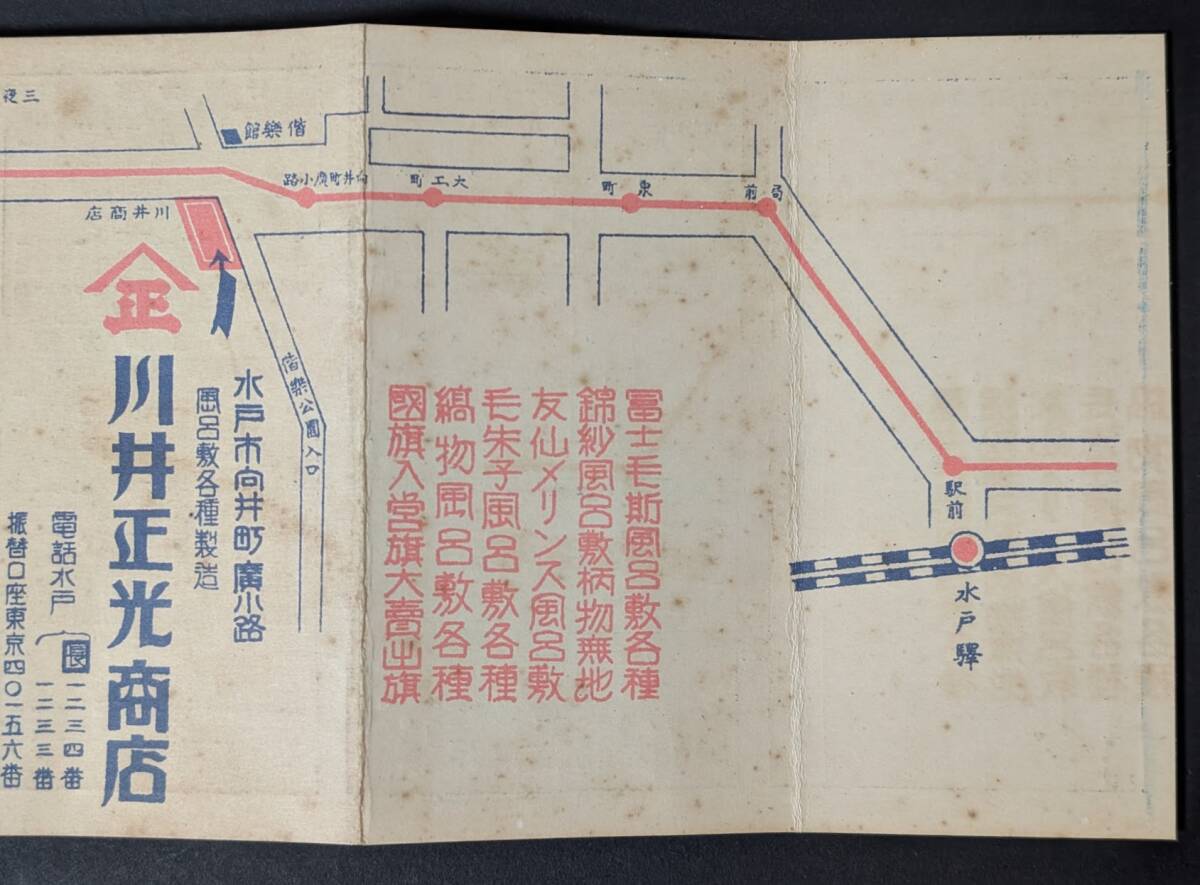 水戸驛
駅前
局前
泉町
大工町
向井町廣小路
偕樂館
三夜
川井商店
偕樂公園入口
冨士毛斯風呂敷各種
錦紗風呂敷柄物無地
友仙メリンス風呂敷
毛朱子風呂敷各種
縞物風呂敷各種
國旗入営旗大賣出旗
水戸市向井町廣小路
風呂敷各種製造
正
川井正光商店
電話水戸
長一二三四番
一二三三番
振替口座東京四〇一五六番